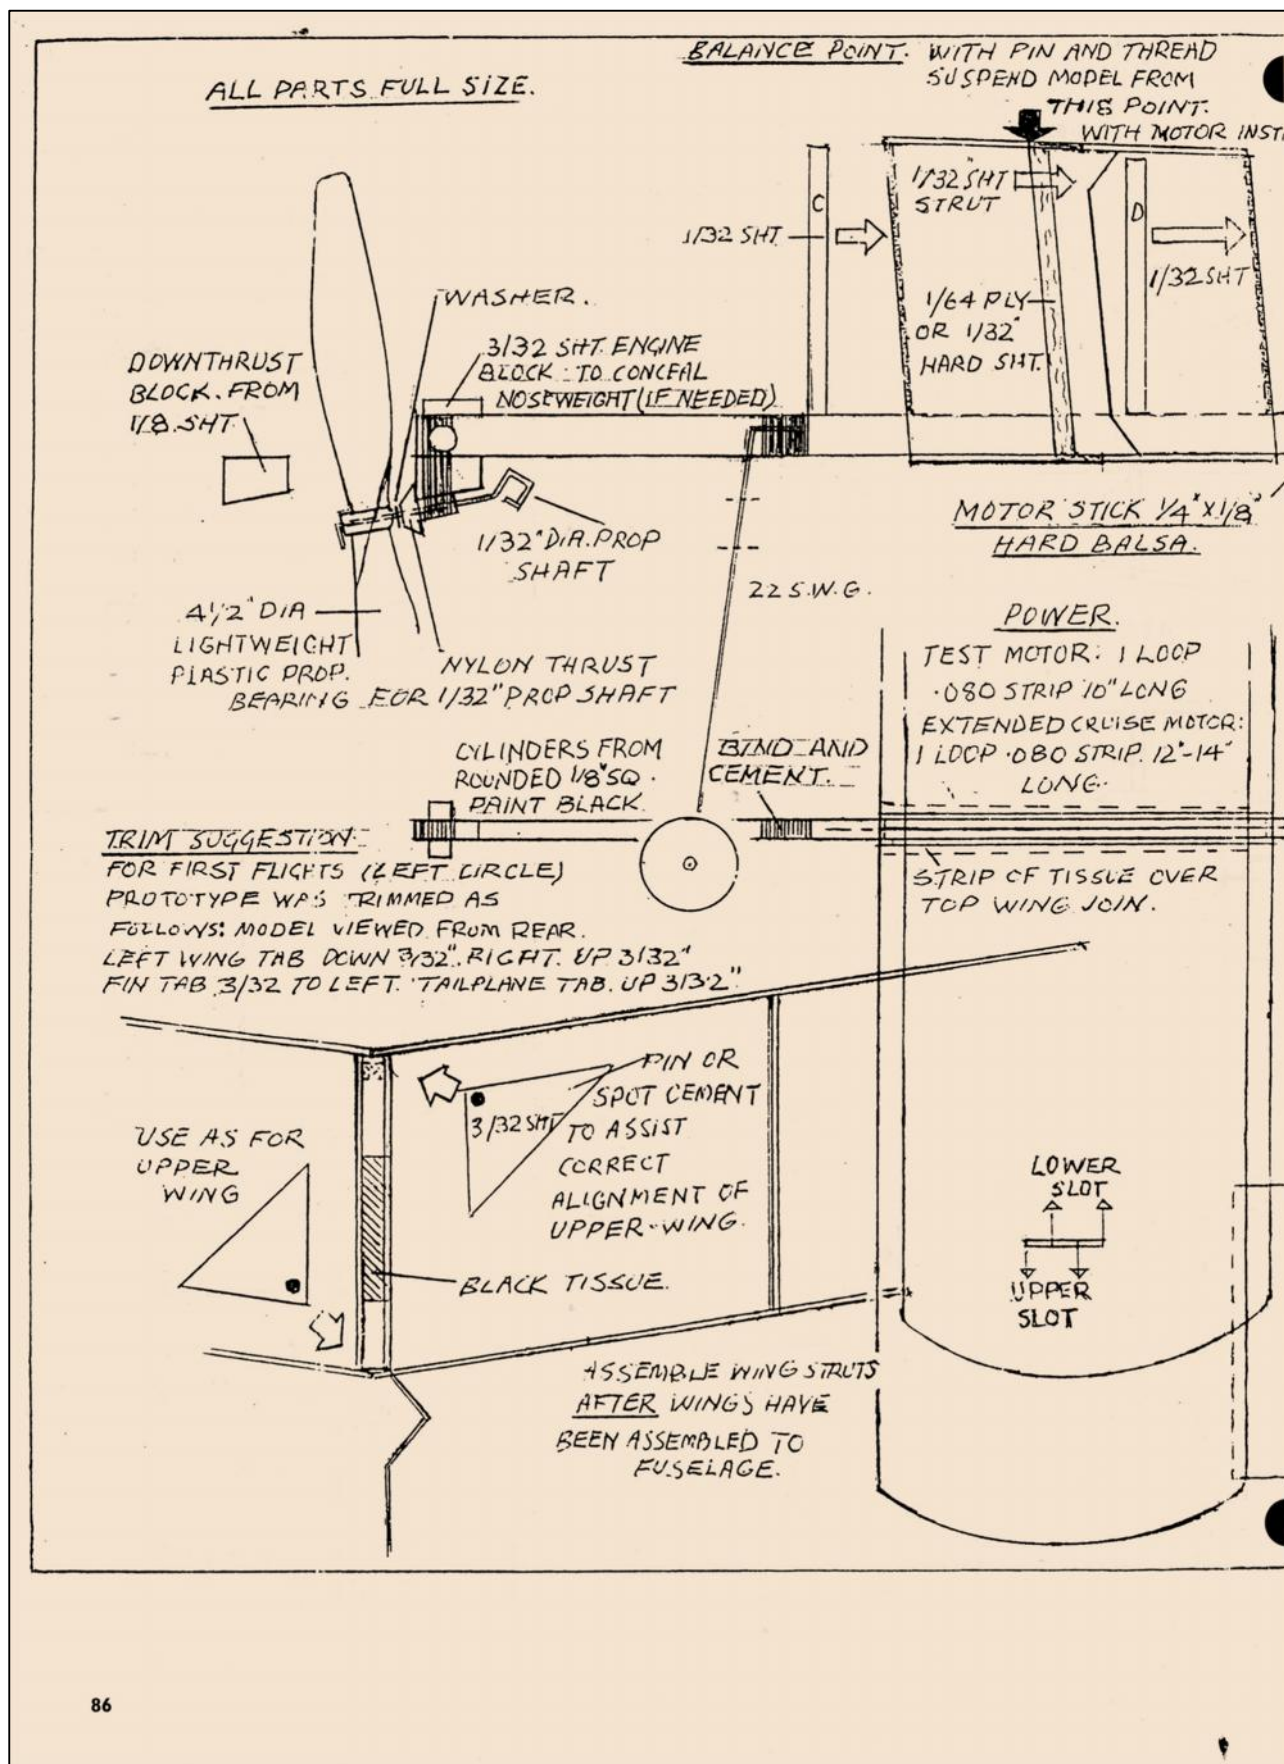 ALL PARTS FULL SIZE.
BALANCE POINT. WITH PIN AND THREAD
SUSPEND MODEL FROM
THIS POINT.
WITH MOTOR INST
1/32" SHT
STRUT
C
D
1/32 SHT
1/32 SHT
1/64 PLY
OR 1/32"
HARD SHT.
WASHER.
3/32 SHT. ENGINE
BLOCK : TO CONCEAL
NOSEWEIGHT (IF NEEDED)
DOWNTHRUST
BLOCK. FROM
1/8. SHT.
1/32" DIA. PROP
SHAFT
MOTOR STICK 1/4" X 1/8"
HARD BALSA.
22 S.W.G.
4 1/2" DIA
LIGHTWEIGHT
PLASTIC PROP.
NYLON THRUST
BEARING FOR 1/32" PROP SHAFT
POWER.
TEST MOTOR: 1 LOOP
.080 STRIP 10" LONG
EXTENDED CRUISE MOTOR:
1 LOOP .080 STRIP. 12"-14"
LONG.
CYLINDERS FROM
ROUNDED 1/8" SQ.
PAINT BLACK.
BIND AND
CEMENT.
STRIP OF TISSUE OVER
TOP WING JOIN.
TRIM SUGGESTION
FOR FIRST FLIGHTS (LEFT CIRCLE)
PROTOTYPE WAS TRIMMED AS
FOLLOWS: MODEL VIEWED FROM REAR.
LEFT WING TAB DOWN 3/32". RIGHT. UP 3/32"
FIN TAB 3/32 TO LEFT. TAILPLANE TAB. UP 3/32"
PIN OR
SPOT CEMENT
TO ASSIST
CORRECT
ALIGNMENT OF
UPPER-WING.
3/32 SHT
USE AS FOR
UPPER
WING
BLACK TISSUE.
LOWER
SLOT
UPPER
SLOT
ASSEMBLE WING STRUTS
AFTER WINGS HAVE
BEEN ASSEMBLED TO
FUSELAGE.
86